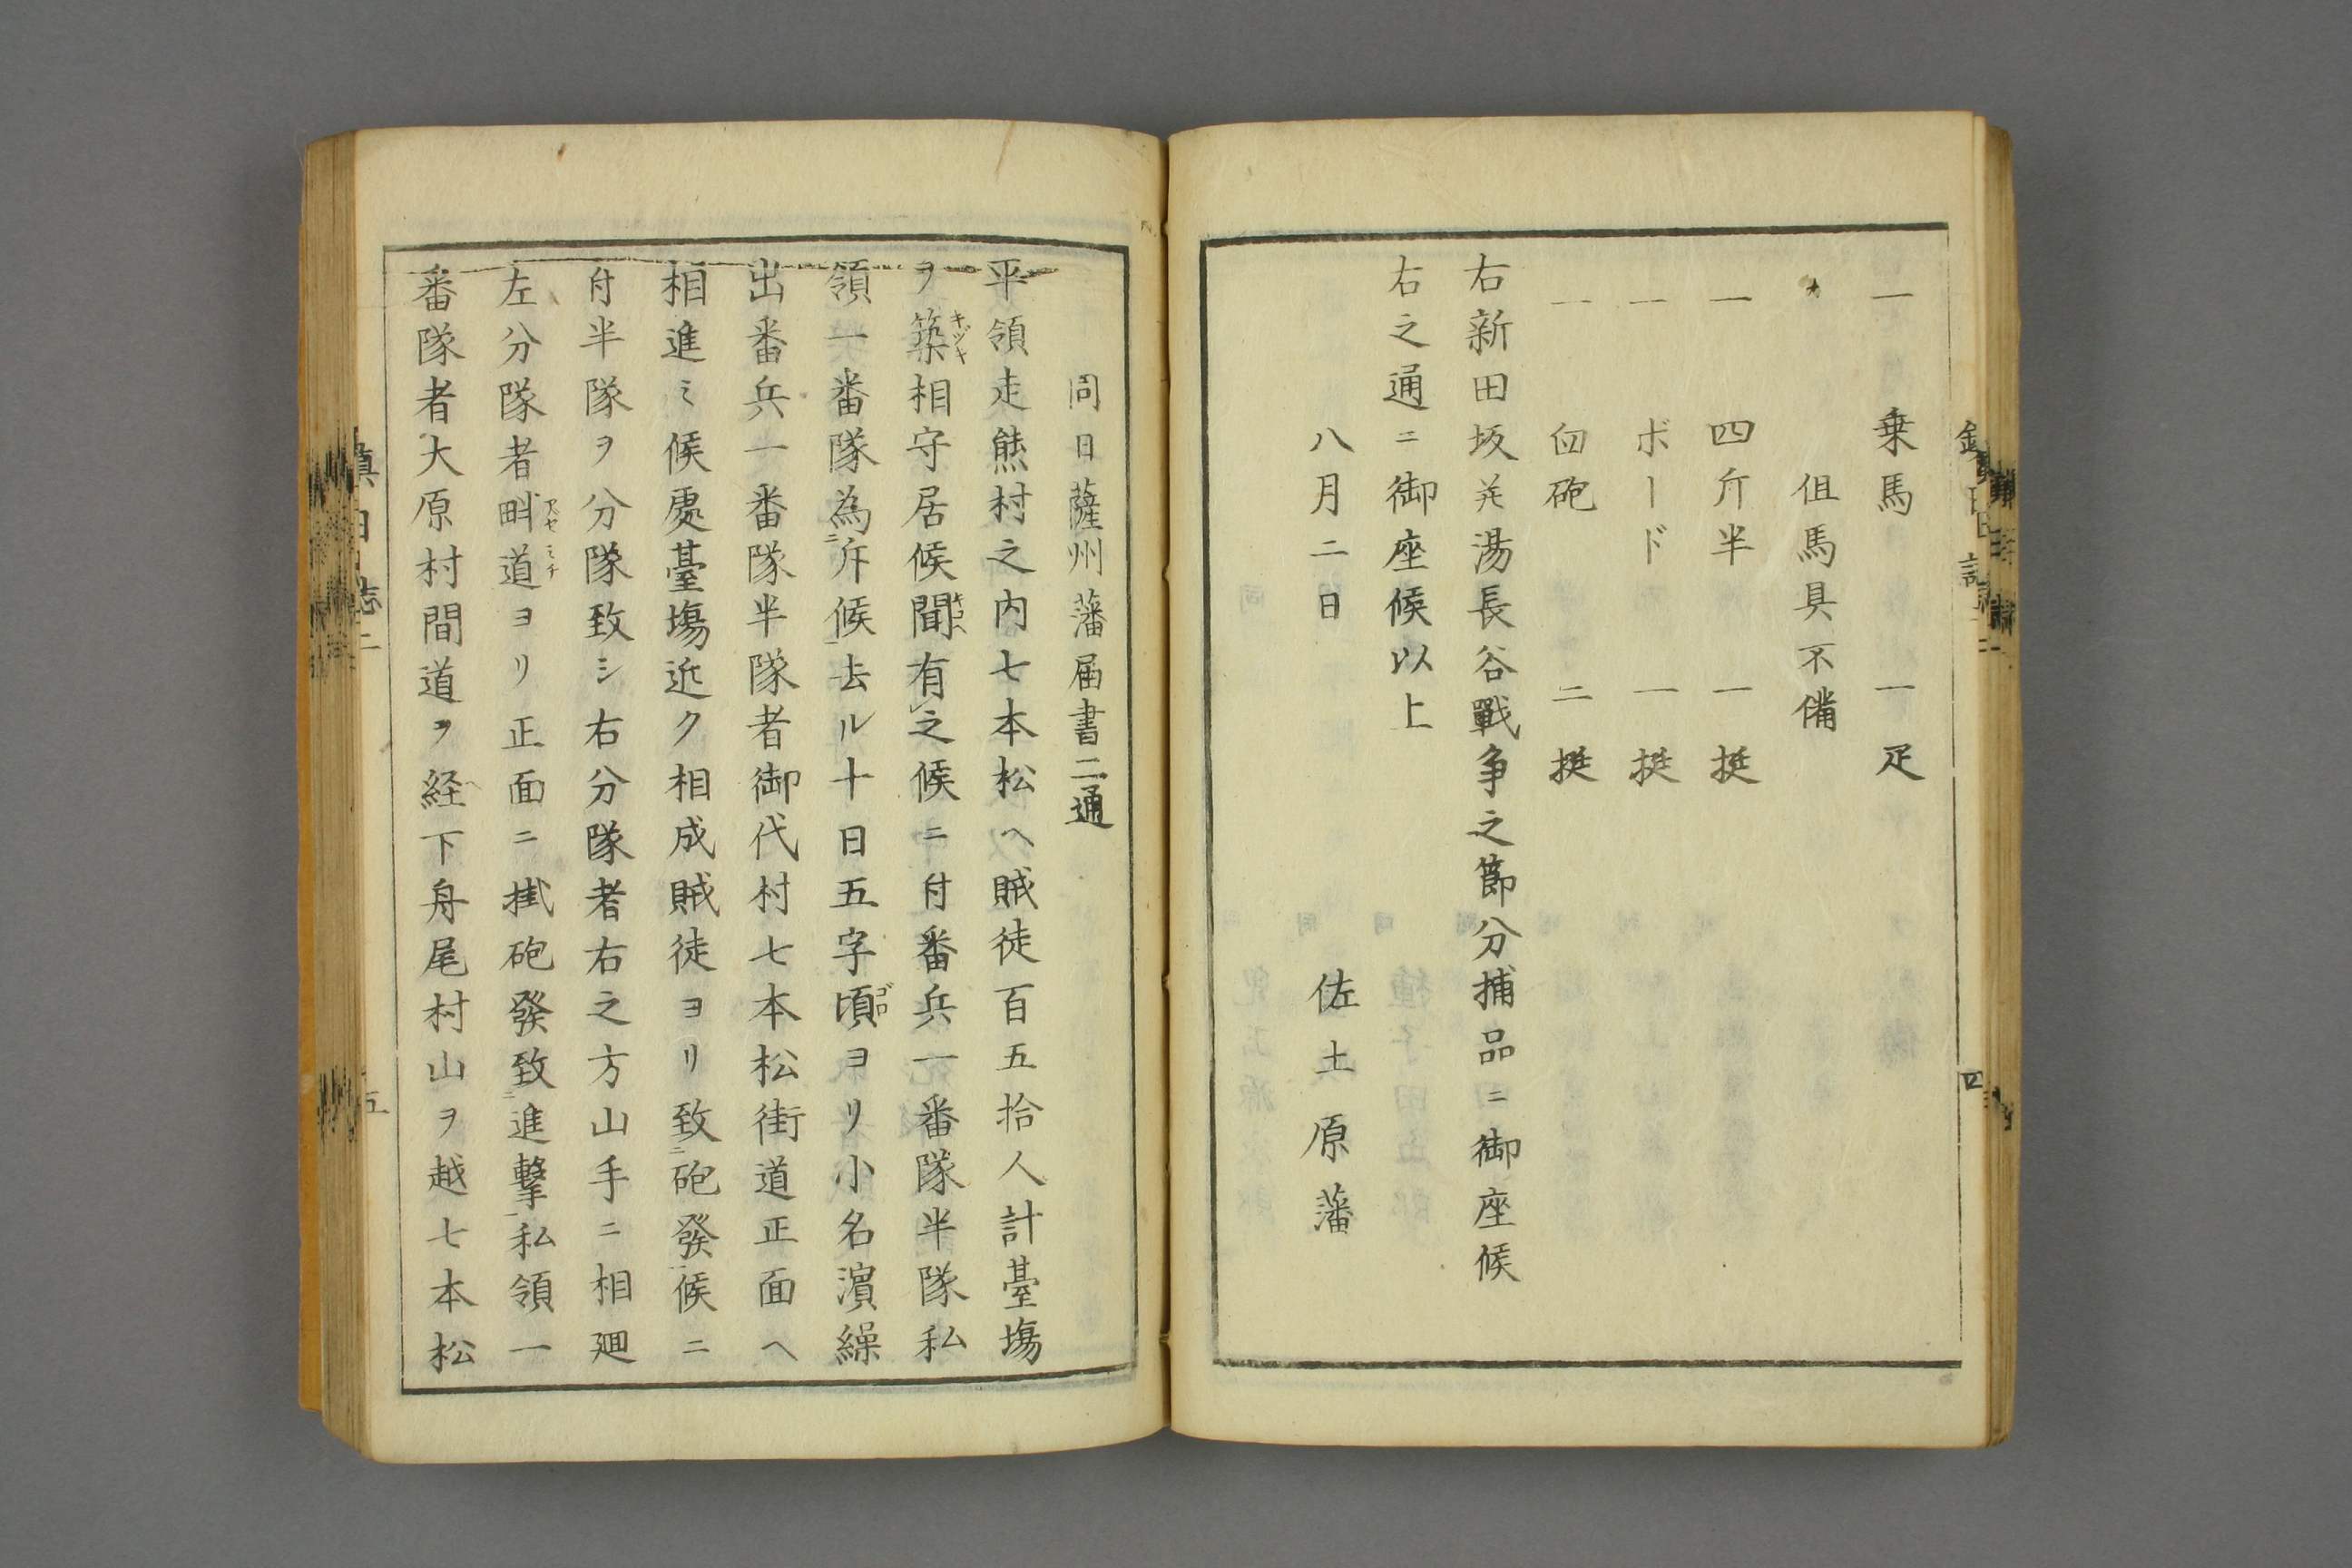 一 乗馬 一疋
但馬具不備
一 四斤半 一挺
一 ボード 一挺
一 臼砲 二挺
右新田坂并湯長谷戰争之節分捕品ニ御座候
右之通ニ御座候以上
八月二日 佐土原藩
四
同日薩州藩届書二通
平領走熊村之内七本松ヘ賊徒百五拾人計臺塲
ヲ築キヅキ相守居候聞キコヘ有レ之候ニ付番兵一番隊半隊私
領一番隊為ニ斥候一去ル十日五字頃ゴロヨリ小名濵繰
出番兵一番隊半隊者御代村七本松街道正面ヘ
相進ミ候處臺塲近ク相成賊徒ヨリ致ニ砲發一候ニ
付半隊ヲ分隊致シ右分隊者右之方山手ニ相廻
左分隊者畔道アセミチヨリ正面ニ掛砲發致ニ進撃一私領一
番隊者大原村間道ヲ経ヘ下舟尾村山ヲ越七本松
五